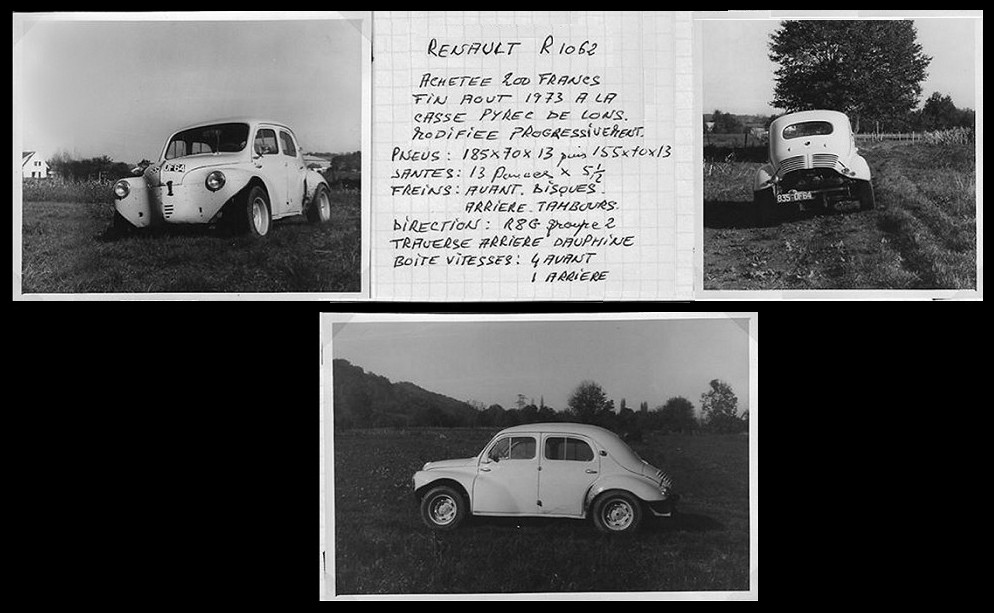 RENAULT R 1062
ACHETEE 200 FRANCS
FIN AOUT 1973 A LA
CASSE PYREC DE LONS.
MODIFIEE PROGRESSIVEMENT.
PNEUS : 185x70x13 puis 155x70x13
JANTES : 13 Pouces x 5 1/2
FREINS : AVANT. DISQUES.
ARRIERE. TAMBOURS.
DIRECTION : R8G groupe 2
TRAVERSE ARRIERE DAUPHINE
BOITE VITESSES : 4 AVANT
1 ARRIERE
1
835 DF 64